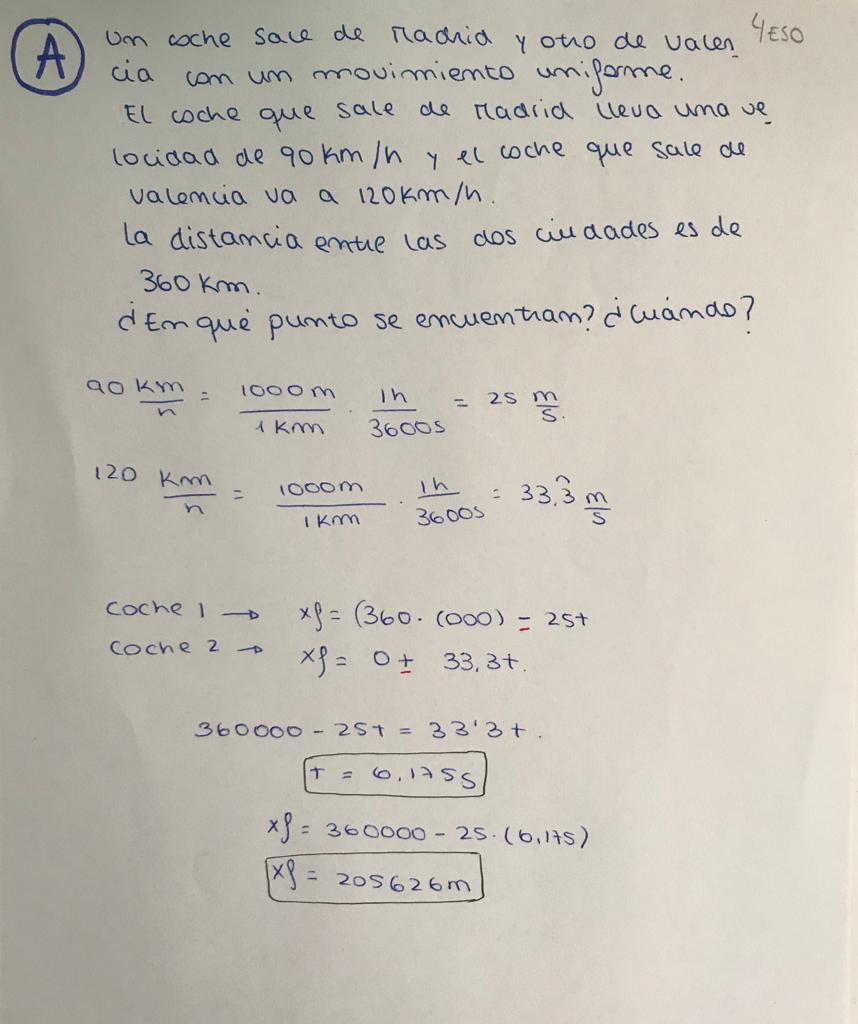 A
4ESO
Un coche sale de Madrid y otro de valen
cia con un movimiento uniforme.
El coche que sale de Madrid lleva una ve
locidad de 90 km/h y el coche que sale de
valencia va a 120 km/h.
La distancia entre las dos ciudades es de
360 km.
¿En qué punto se encuentran? ¿Cuándo?
90 km/h = 1000m/1km . 1h/3600s = 25 m/s.
120 km/h = 1000m/1km . 1h/3600s = 33,3̂ m/s
coche 1 → xf = (360. 1000) - 25t
coche 2 → xf = 0 + 33,3t.
360000 - 25t = 33'3t.
t = 6,175s
xf = 360000 - 25. (6,175)
xf = 205626m